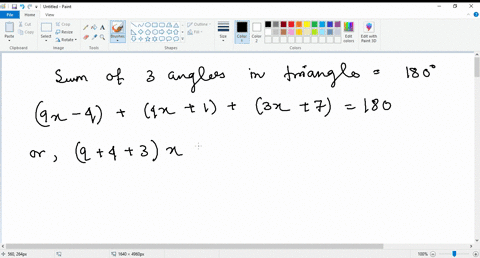 Untitled - Paint
File Home View
Paste
Cut
Copy
Select
Crop
Resize
Rotate
Brushes
Outline
Fill
Size
Color 1
Color 2
Edit colors
Edit with Paint 3D
Clipboard
Image
Tools
Shapes
Colors
Sum of 3 angles in triangle = 180°
(9x-4) + (4x+1) + (3x+7) = 180
or, (9+4+3) x
560, 264px
1640 × 4960px
100%